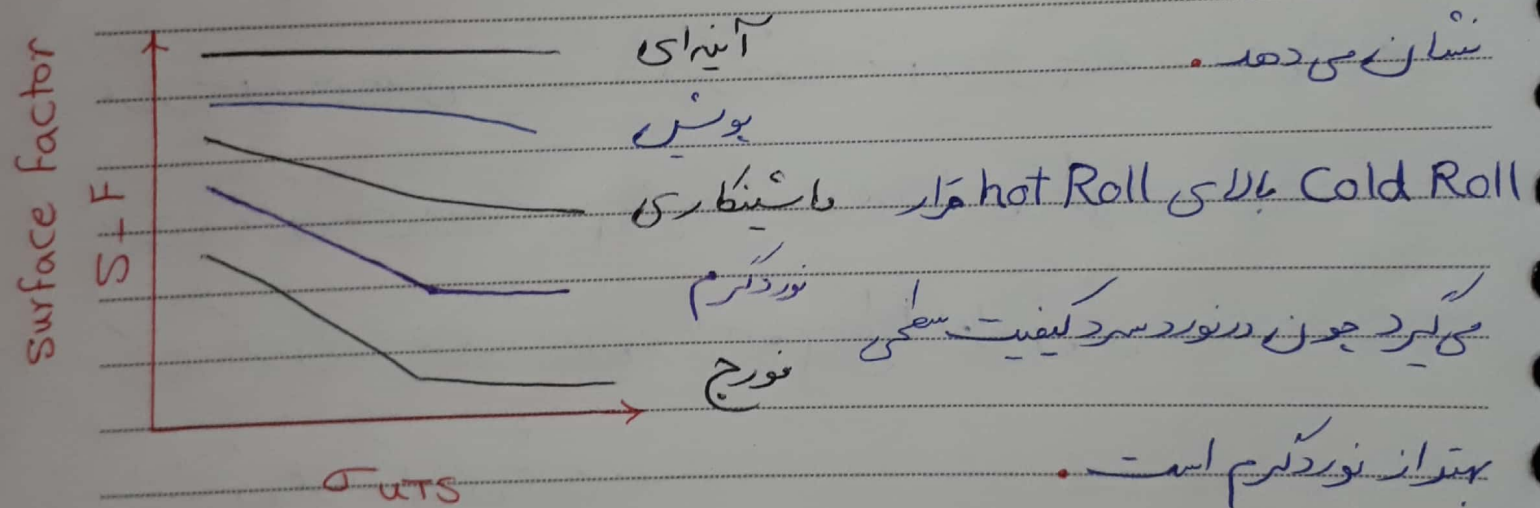 نشان می دهد.
Cold Roll بالای hot Roll قرار
می گیرد چون در نورد سرد کیفیت سطحی
بهتر از نورد گرم است.
Surface factor
S-F
آینه ای
پولیش
ماشینکاری
نورد گرم
فورج
σ UTS